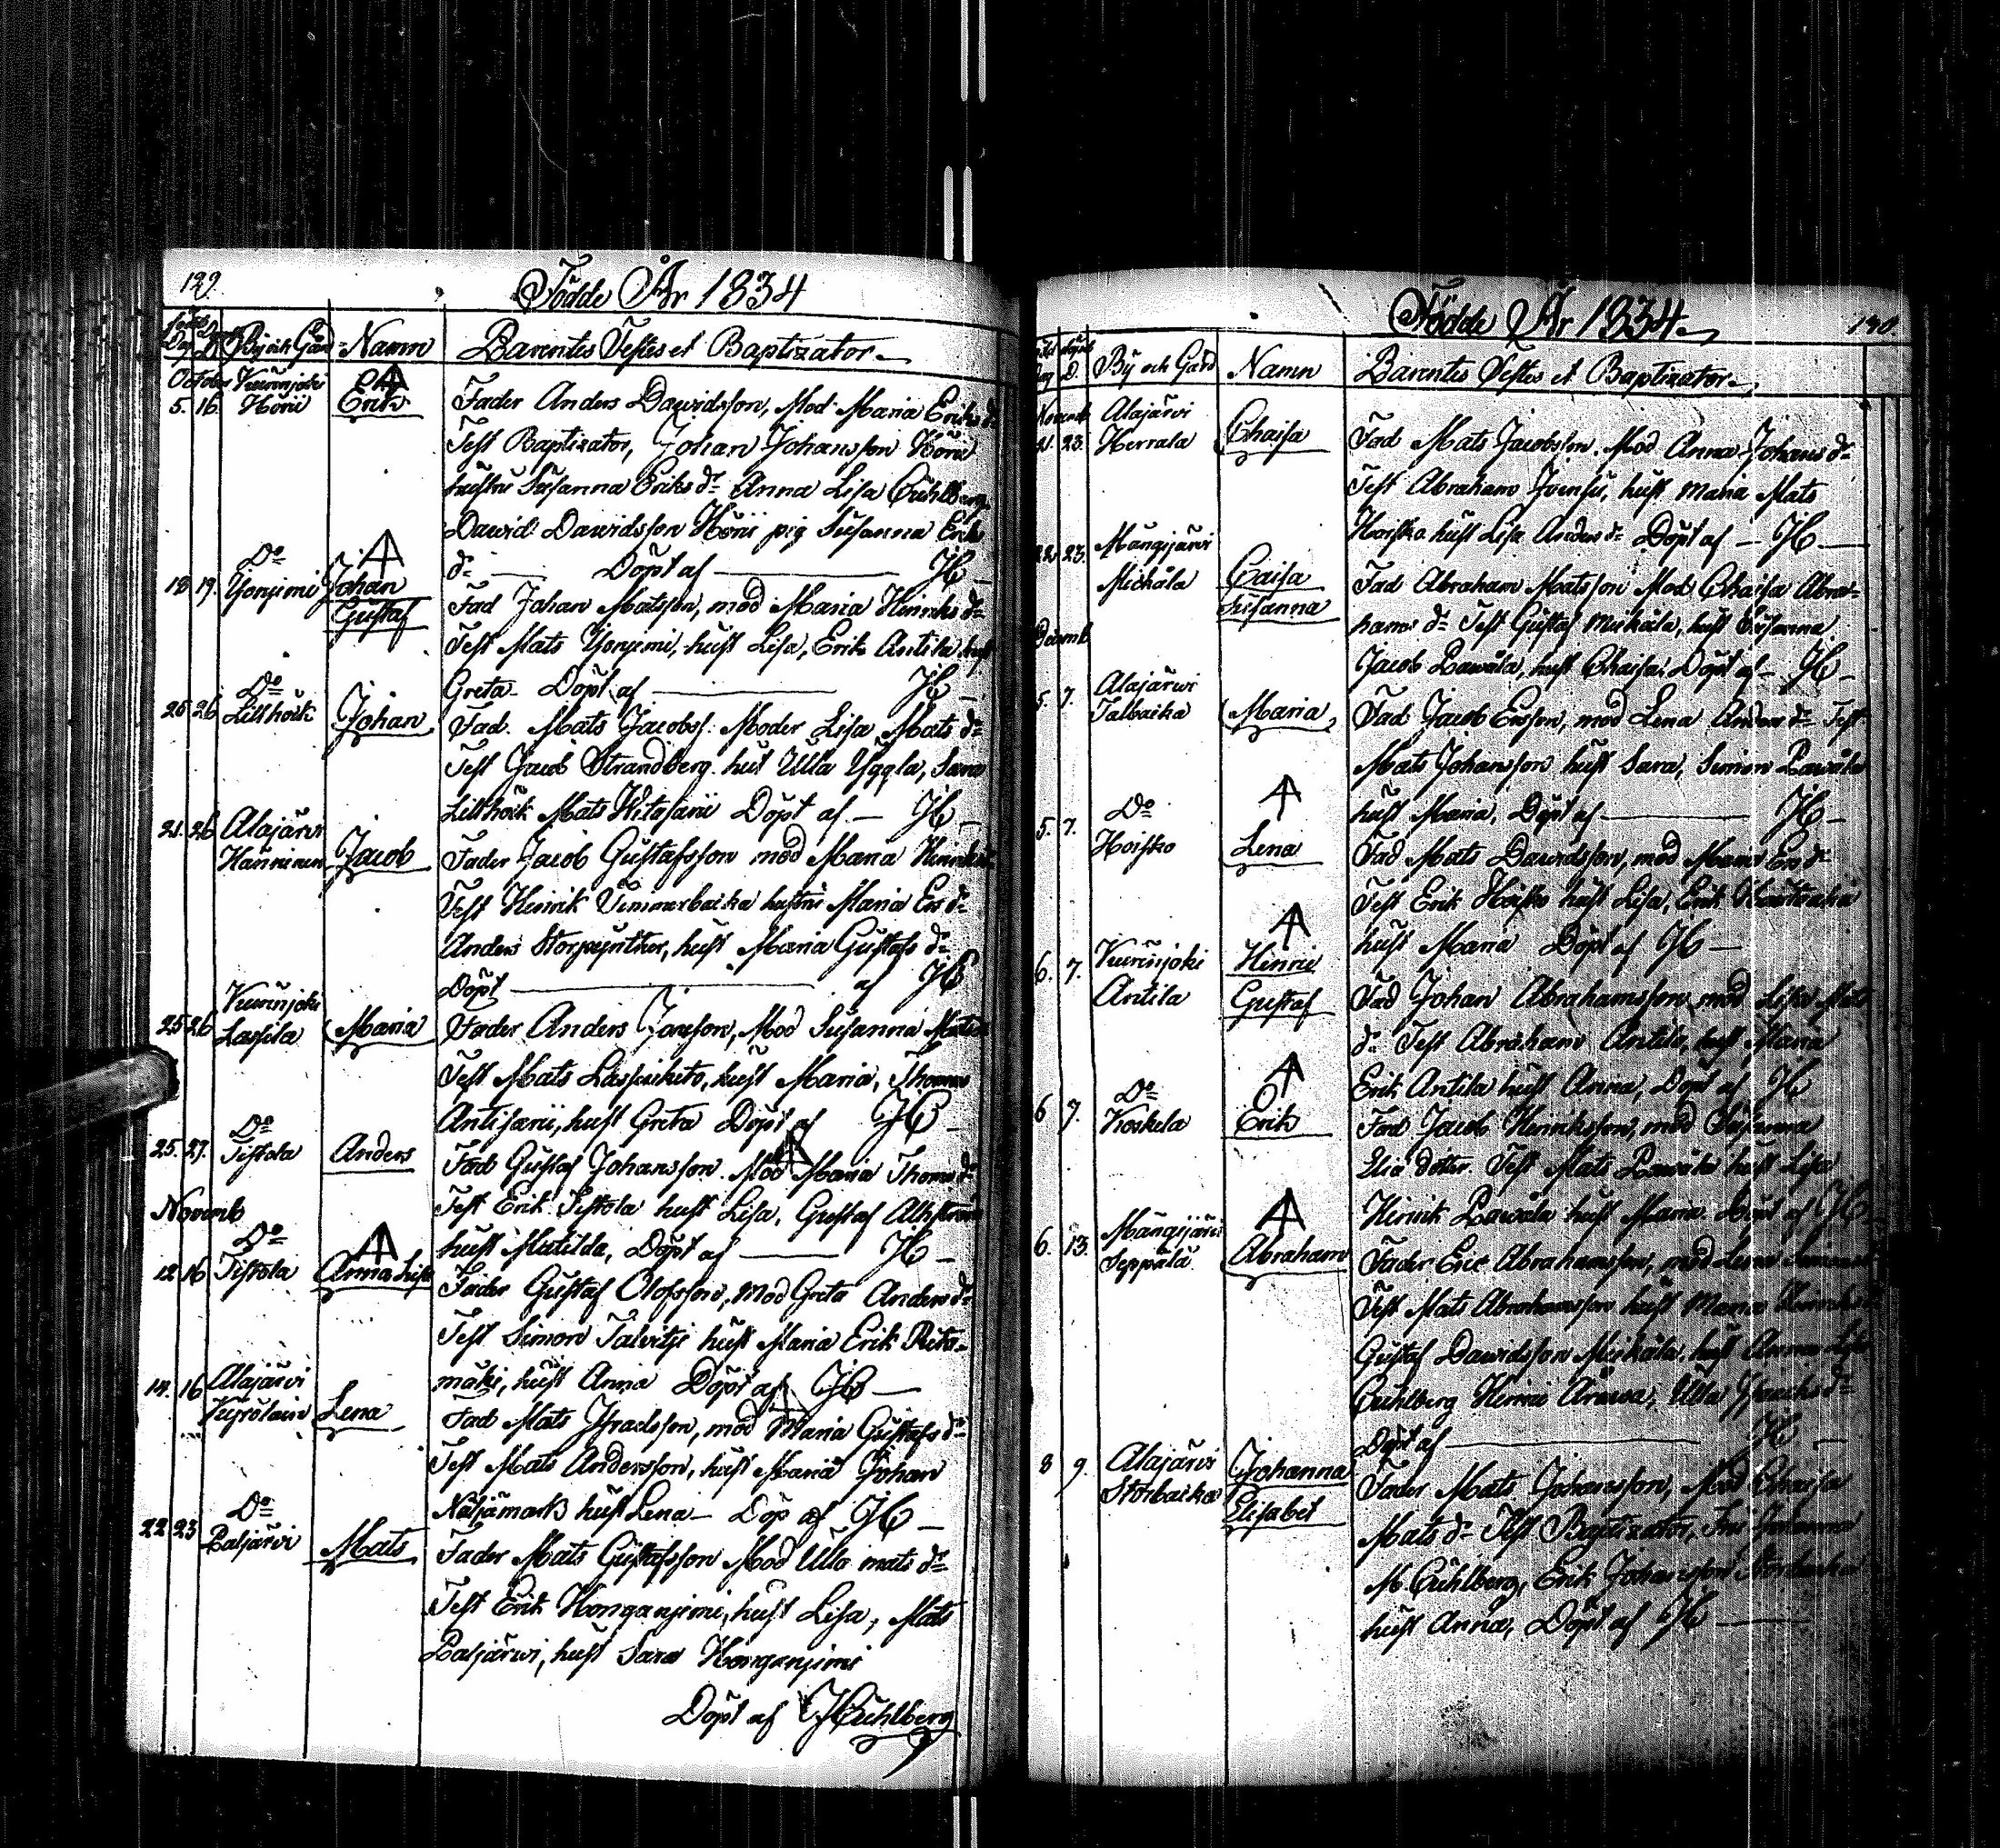 129.
Födde År 1834
Född Döpt
Dag D. By och Gård Namn Parentes Testes et Baptizator
October Kuurinjoki
5. 16. Hörii Erik Fader Anders Dawidsson, Mod. Maria Eriks dr
Test Baptizator, Johan Johansson Höru
hustru Susanna Eriks dr Anna Lisa Cuhlberg
Dawid Dawidsson Hörii pig Susanna Eriks
dr Döpt af JC
Do
18 19. Ylonjemi Johan Gustaf Fad Johan Matsson, mod Maria Henriks dr
Test Mats Ylonjemi, hust Lisa, Erik Antila hust
Greta Döpt af JC
Do
25 26 Lillhöik Johan Fad. Mats Jacobss. Moder Lisa Mats dr
Test Jacob Strandberg hust Ulla Uggla, Sara
Lillhöik Mats Döpt af JC
21. 26 Alajärvi
Hanninen Jacob Fader Jacob Gustafsson mod Maria
Test Hinrik hustru Maria Ers dr
Anders hust Maria Gustafs dr
Döpt af JC
Kuurinjoki
25 26 Lassila Maria Fader Anders mod Susanna
Test Mats hust Maria, Thomas
hust Greta Döpt af JC
Do
25. 27. Tistola Anders Fad Gustaf Johansson. Mod Maria Thomæ dr
Test Erik Tistola hust Lisa, Gustaf
hust Matilda, Döpt af JC
Novemb
Do
12 16 Tistola Anna Lisa Fader Gustaf Olofsson, Mod Greta Anders dr
Test Simon Talvitji hust Maria Erik
mäki, hust Anna Döpt af JC
14. 16 Alajärvi
Lena Fad Mats mod Maria Gustafs dr
Test Mats Andersson, hust Maria Johan
hust Lena Döp af JC
Do
22 23 Paljärvi Mats Fader Mats Gustafsson Mod Ulla mats dr
Test Erik Honganjemi, hust Lisa, Mats
Paljärwi, hust Sara Honganjemi
Döpt af JCuhlberg
Födde År 1834
130.
By och Gård Namn Parentes Testes et Baptizator
Novemb Alajärvi
21. 23. Herrala Chaisa Fad Mats Jacobsson. Mod Anna Johans dr
Test Abraham hust Maria Mats
Hoisko hust Lisa Anders dr Döpt af JC
22. 23. Mängijärvi
Mickäla Caisa Susanna Fad Abraham Matsson Mod Chaisa Abra-
hams dr Test Gustaf Mickäla, hust Susanna
Jacob Pawåla, hust Chaisa Döpt af JC
Decemb
5. 7. Alajärwi
Talbacka Maria Fad Jacob Ersson, mod Lena Anders dr Test
Mats Johansson hust Sara, Simon Pawåla
hust Maria, Döpt af JC
Do
5. 7. Hoisko Lena Fad Mats Dawidsson, mod Maria Ers dr
Test Erik Hoisko hust Lisa, Erik
hust Maria Döpt af JC
6. 7. Kuurinjoki
Antila Hinric Gustaf Fad Johan Abrahamsson mod Lisa Mats
dr Test Abraham Antila, hust Maria
Erik Antila hust Anna, Döpt af JC
Do
6 7. Koskela Erik Fad Jacob Henriksson, mod Susanna
Elia dotter. Test Mats Pawåla hust Lisa
Hinrik Pawåla hust Maria Döpt af JC
6. 13. Mängijärvi
Seppälä Abraham Fader Eric Abrahamsson, mod Lena
Test Mats Abrahamsson hust Maria
Gustaf Dawidsson Mickäla, hust Anna Lisa
Cuhlberg Ulla dr
Döpt af JC
8 9. Alajärvi
Storbacka Johanna Elisabet Fader Mats Johansson, Mod Chaisa
Mats dr Test Baptizator, Fru Johanna
M Cuhlberg, Erik Johansson Storbacka
hust Anna, Döpt af JC